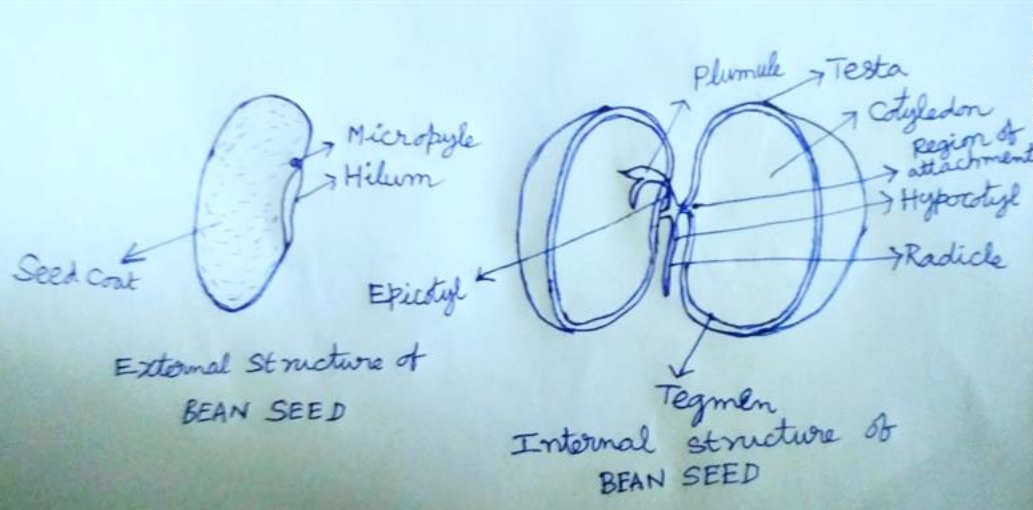 Micropyle
Hilum
Seed coat
External Structure of
BEAN SEED
Plumule
Testa
Cotyledon
Region of
attachment
Hypocotyl
Radicle
Epicotyl
Tegmen
Internal structure of
BEAN SEED